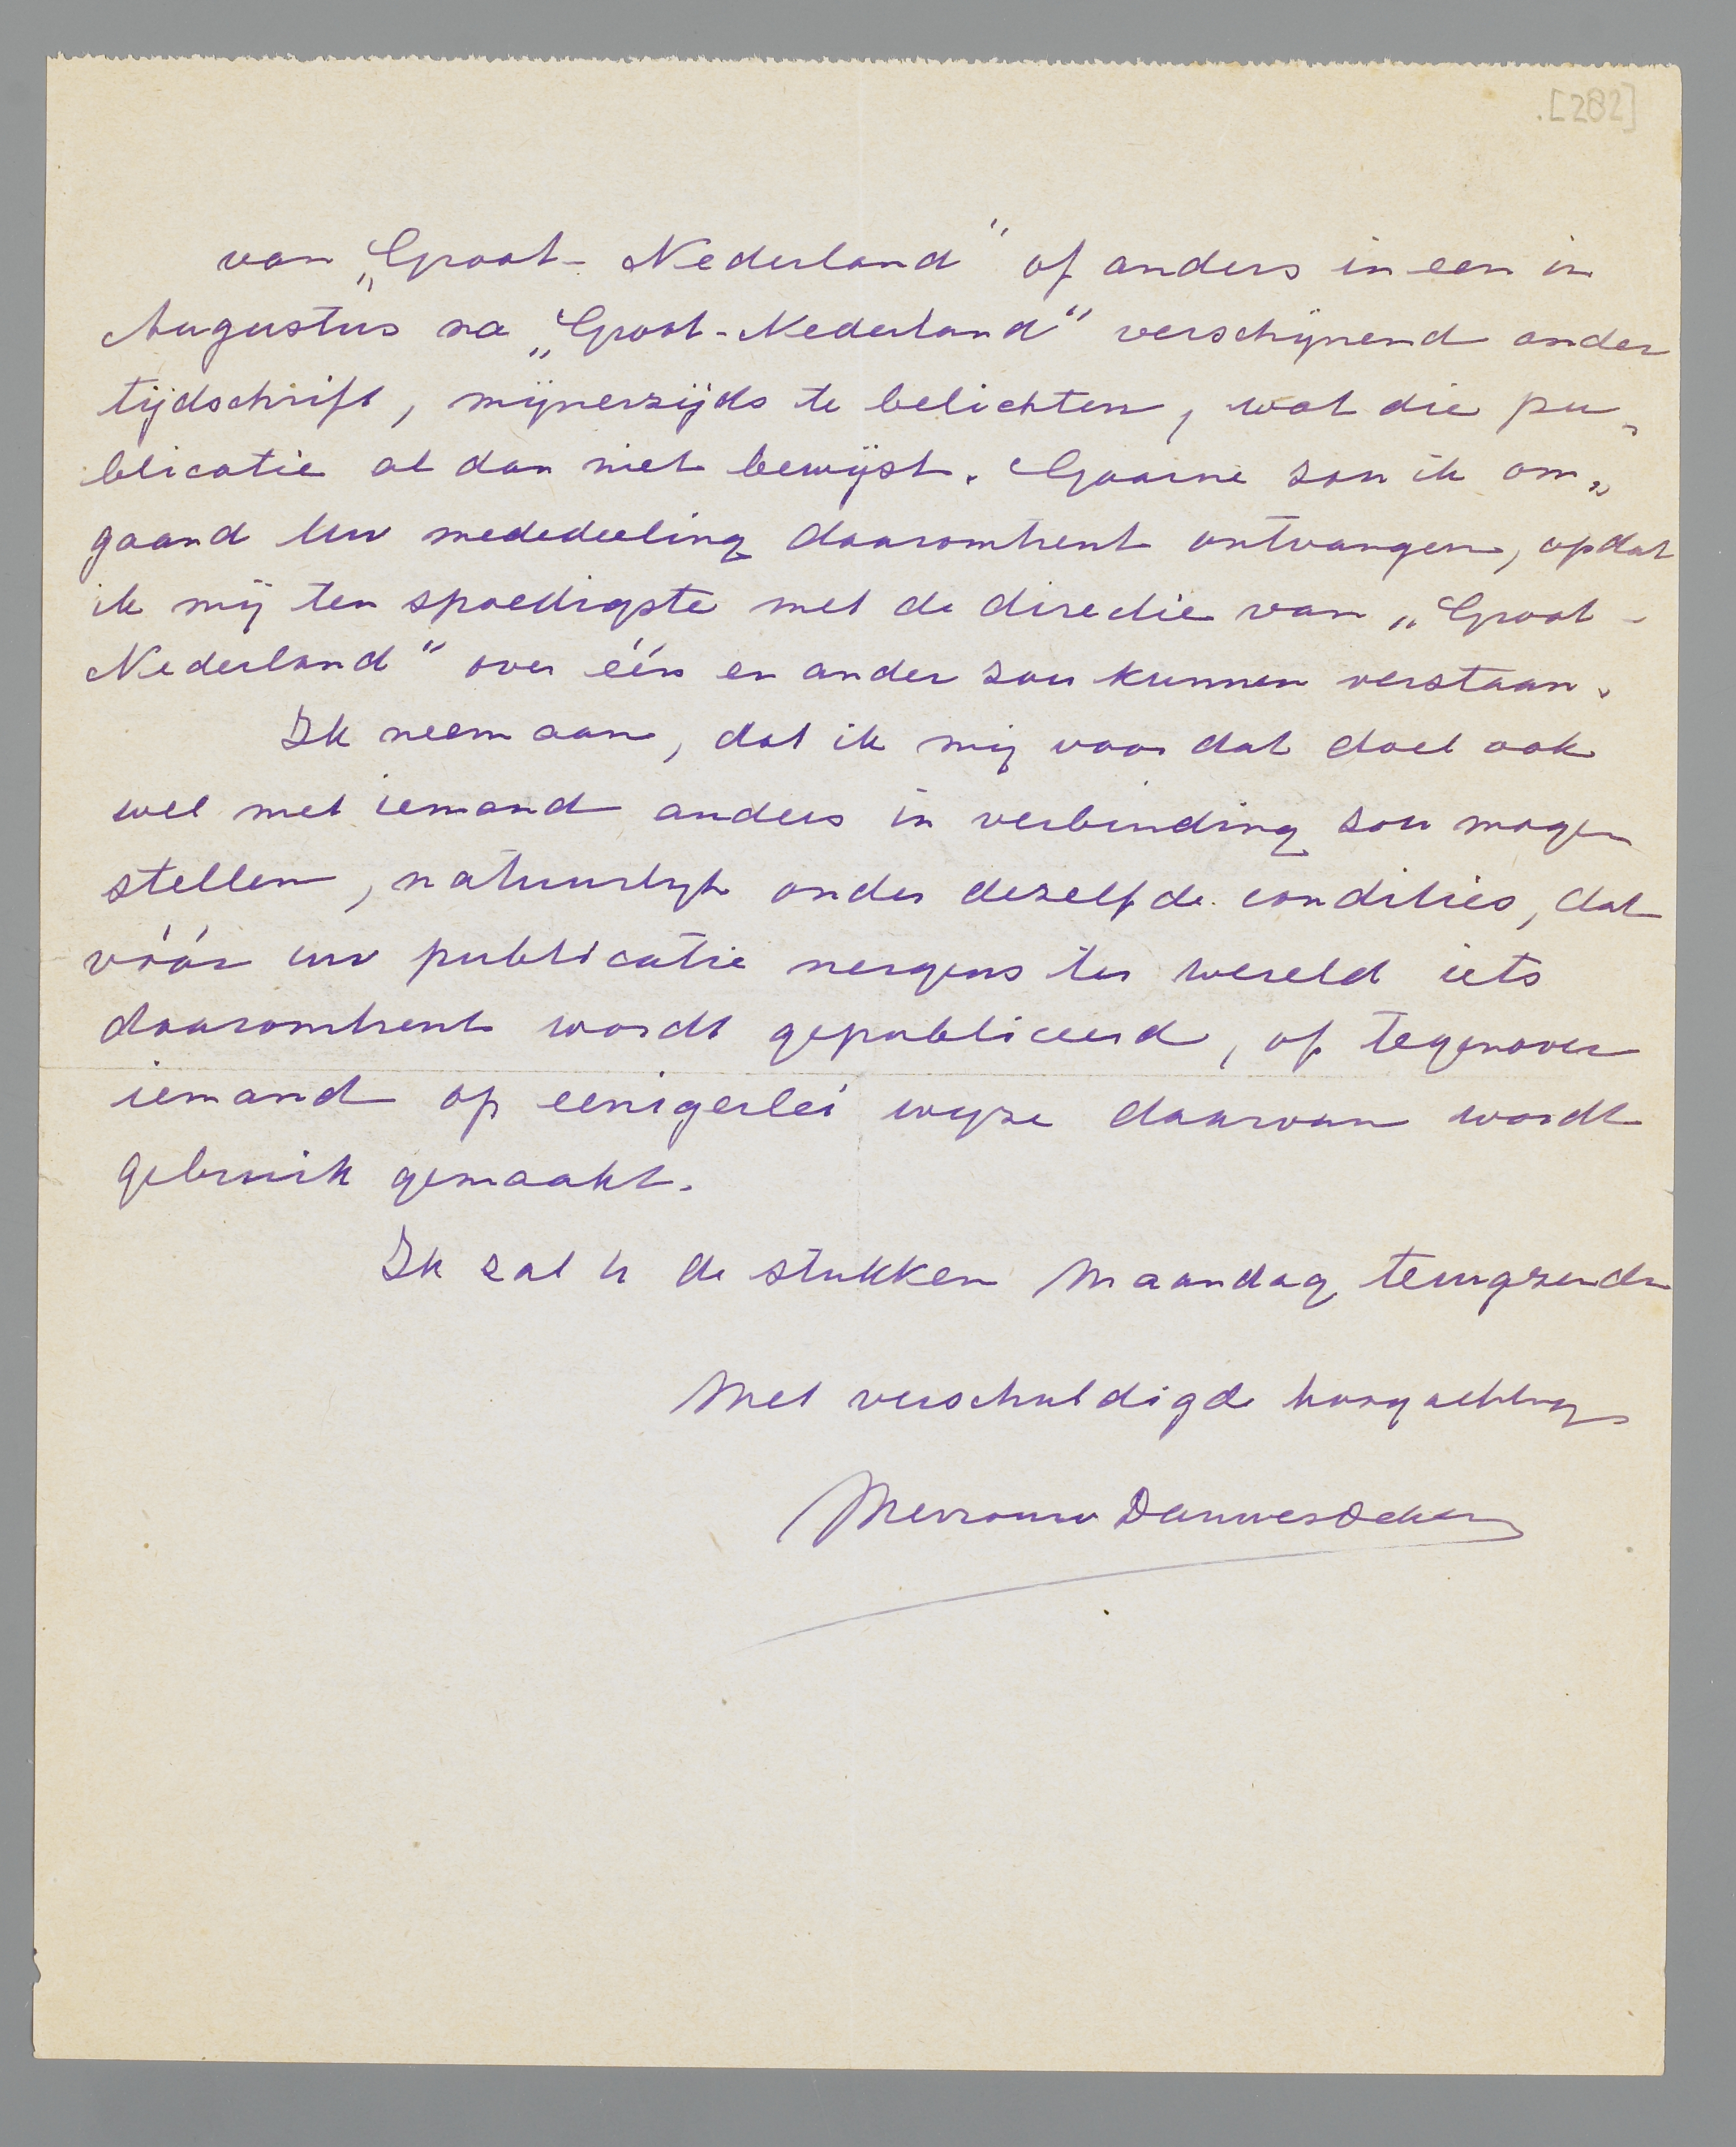 .[282]
van „Groot-Nederland" of anders in een in
Augustus na „Groot-Nederland" verschijnend ander
tijdschrift, mijnerzijds te belichten, wat die pu„
blicatie al dan niet bewijst. Gaarne zou ik om„
gaand Uw mededeeling daaromtrent ontvangen, opdat
ik mij ten spoedigste met de directie van „Groot-
Nederland" over één en ander zou kunnen verstaan.
Ik neem aan, dat ik mij voor dat doel ook
wel met iemand anders in verbinding zou mogen
stellen, natuurlijk onder dezelfde condities, dat
vóór uw publicatie nergens ter wereld iets
daaromtrent wordt gepubliceerd, of tegenover
iemand op eenigerlei wijze daarvan wordt
gebruik gemaakt.
Ik zal U de stukken Maandag terugzenden
Met verschuldigde hoogachting
Mevrouw Douwes Dekker